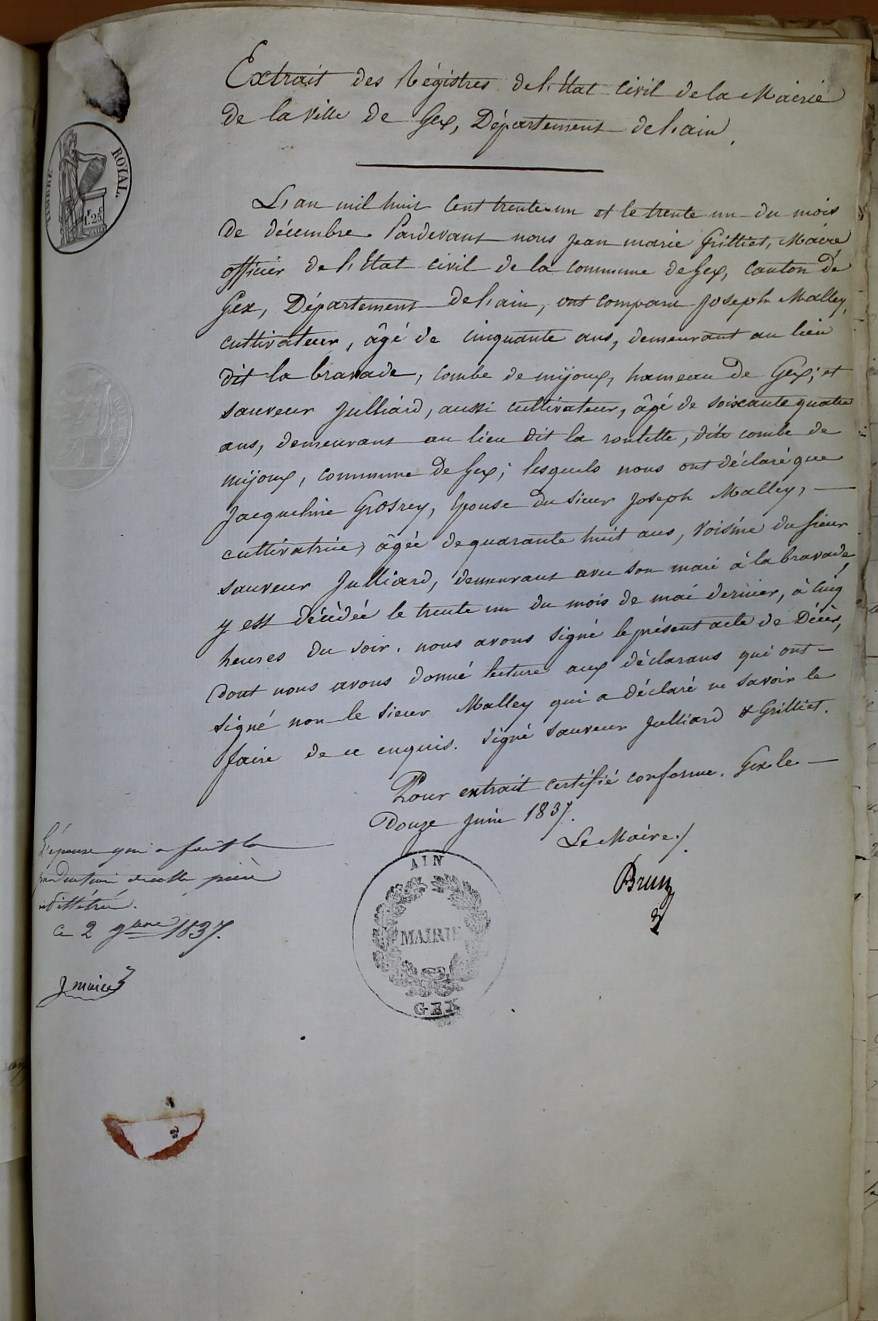 Extrait des Régistres de l'Etat Civil de la Mairie
de la ville de Gex, Département de l'ain.
TIMBRE ROYAL.
1.25
L'an mil huit Cent trente un et le trente un du mois
de décembre. Pardevant nous Jean marie Grilliet, Maire
officier de l'Etat civil de la commune de Gex, canton de
Gex, Département de l'ain, ont comparu Joseph Malley,
cultivateur, âgé de cinquante ans, demeurant au lieu
dit la bravade, combe de mijoux, hameau de Gex; et
sauveur Julliard, aussi cultivateur, âgé de soixante quatre
ans, demeurant au lieu dit la roulette, dite combe de
mijoux, commune de Gex; lesquels nous ont déclaré que
Jacqueline Grosrey, épouse du sieur Joseph Malley, —
cultivatrice, âgée de quarante huit ans, voisine du sieur
sauveur Julliard, demeurant avec son mari à la bravade,
y est décédée le trente un du mois de mai dernier, à cinq
heures du soir. nous avons signé le présent acte de Décès,
dont nous avons donné lecture aux déclarans qui ont —
signé non le sieur Malley qui a déclaré ne savoir le
faire de ce enquis. Signé sauveur Julliard & Grilliet.
Pour extrait certifié conforme. Gex le —
Douze Juin 1837.
Le Maire,
L'épouse qui a fait la
production de cette pièce
est illétrée.
ce 2 9bre 1837.
AIN
MAIRIE
GEX